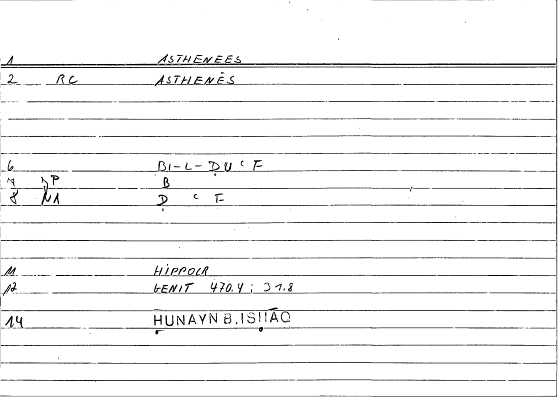 1 ASTHENEES
2 RC ASTHENĒS
6 BI-L-ḌUʿF
7 JP B
8 NA Ḍ ʿ F
11 HIPPOCR
12 GENIT 470.4 ; 31.8
14 ḤUNAYN B. ISḤĀQ